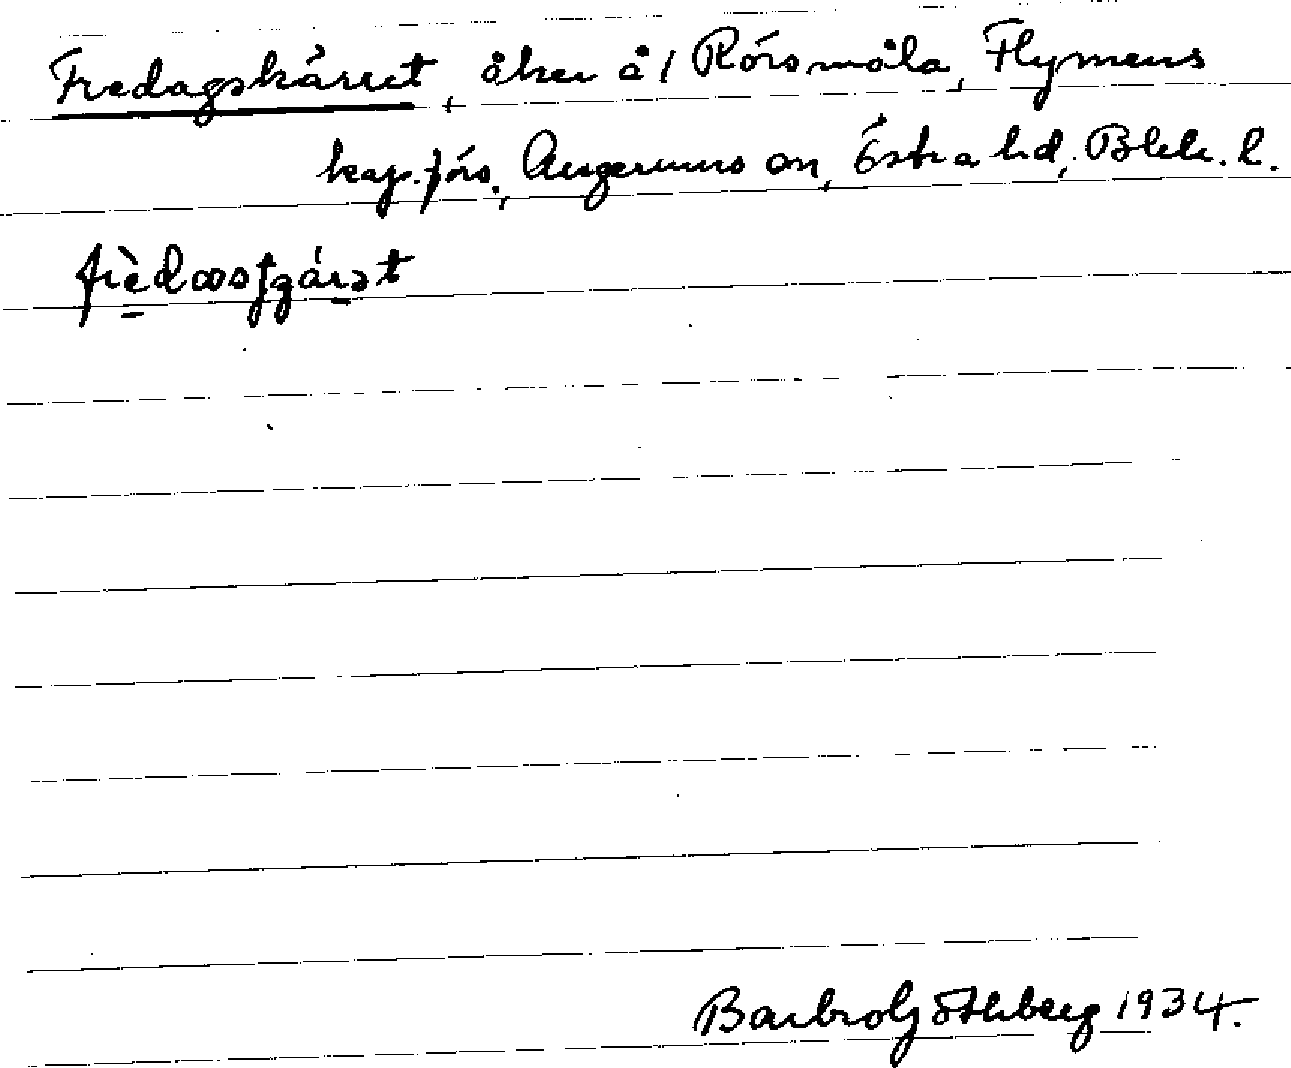 Fredagskärret, åker å 1 Rörsmåla, Flymens
kap.förs., Augerums sn, Östra hd, Blek. l.
Barbro Göthberg 1934.